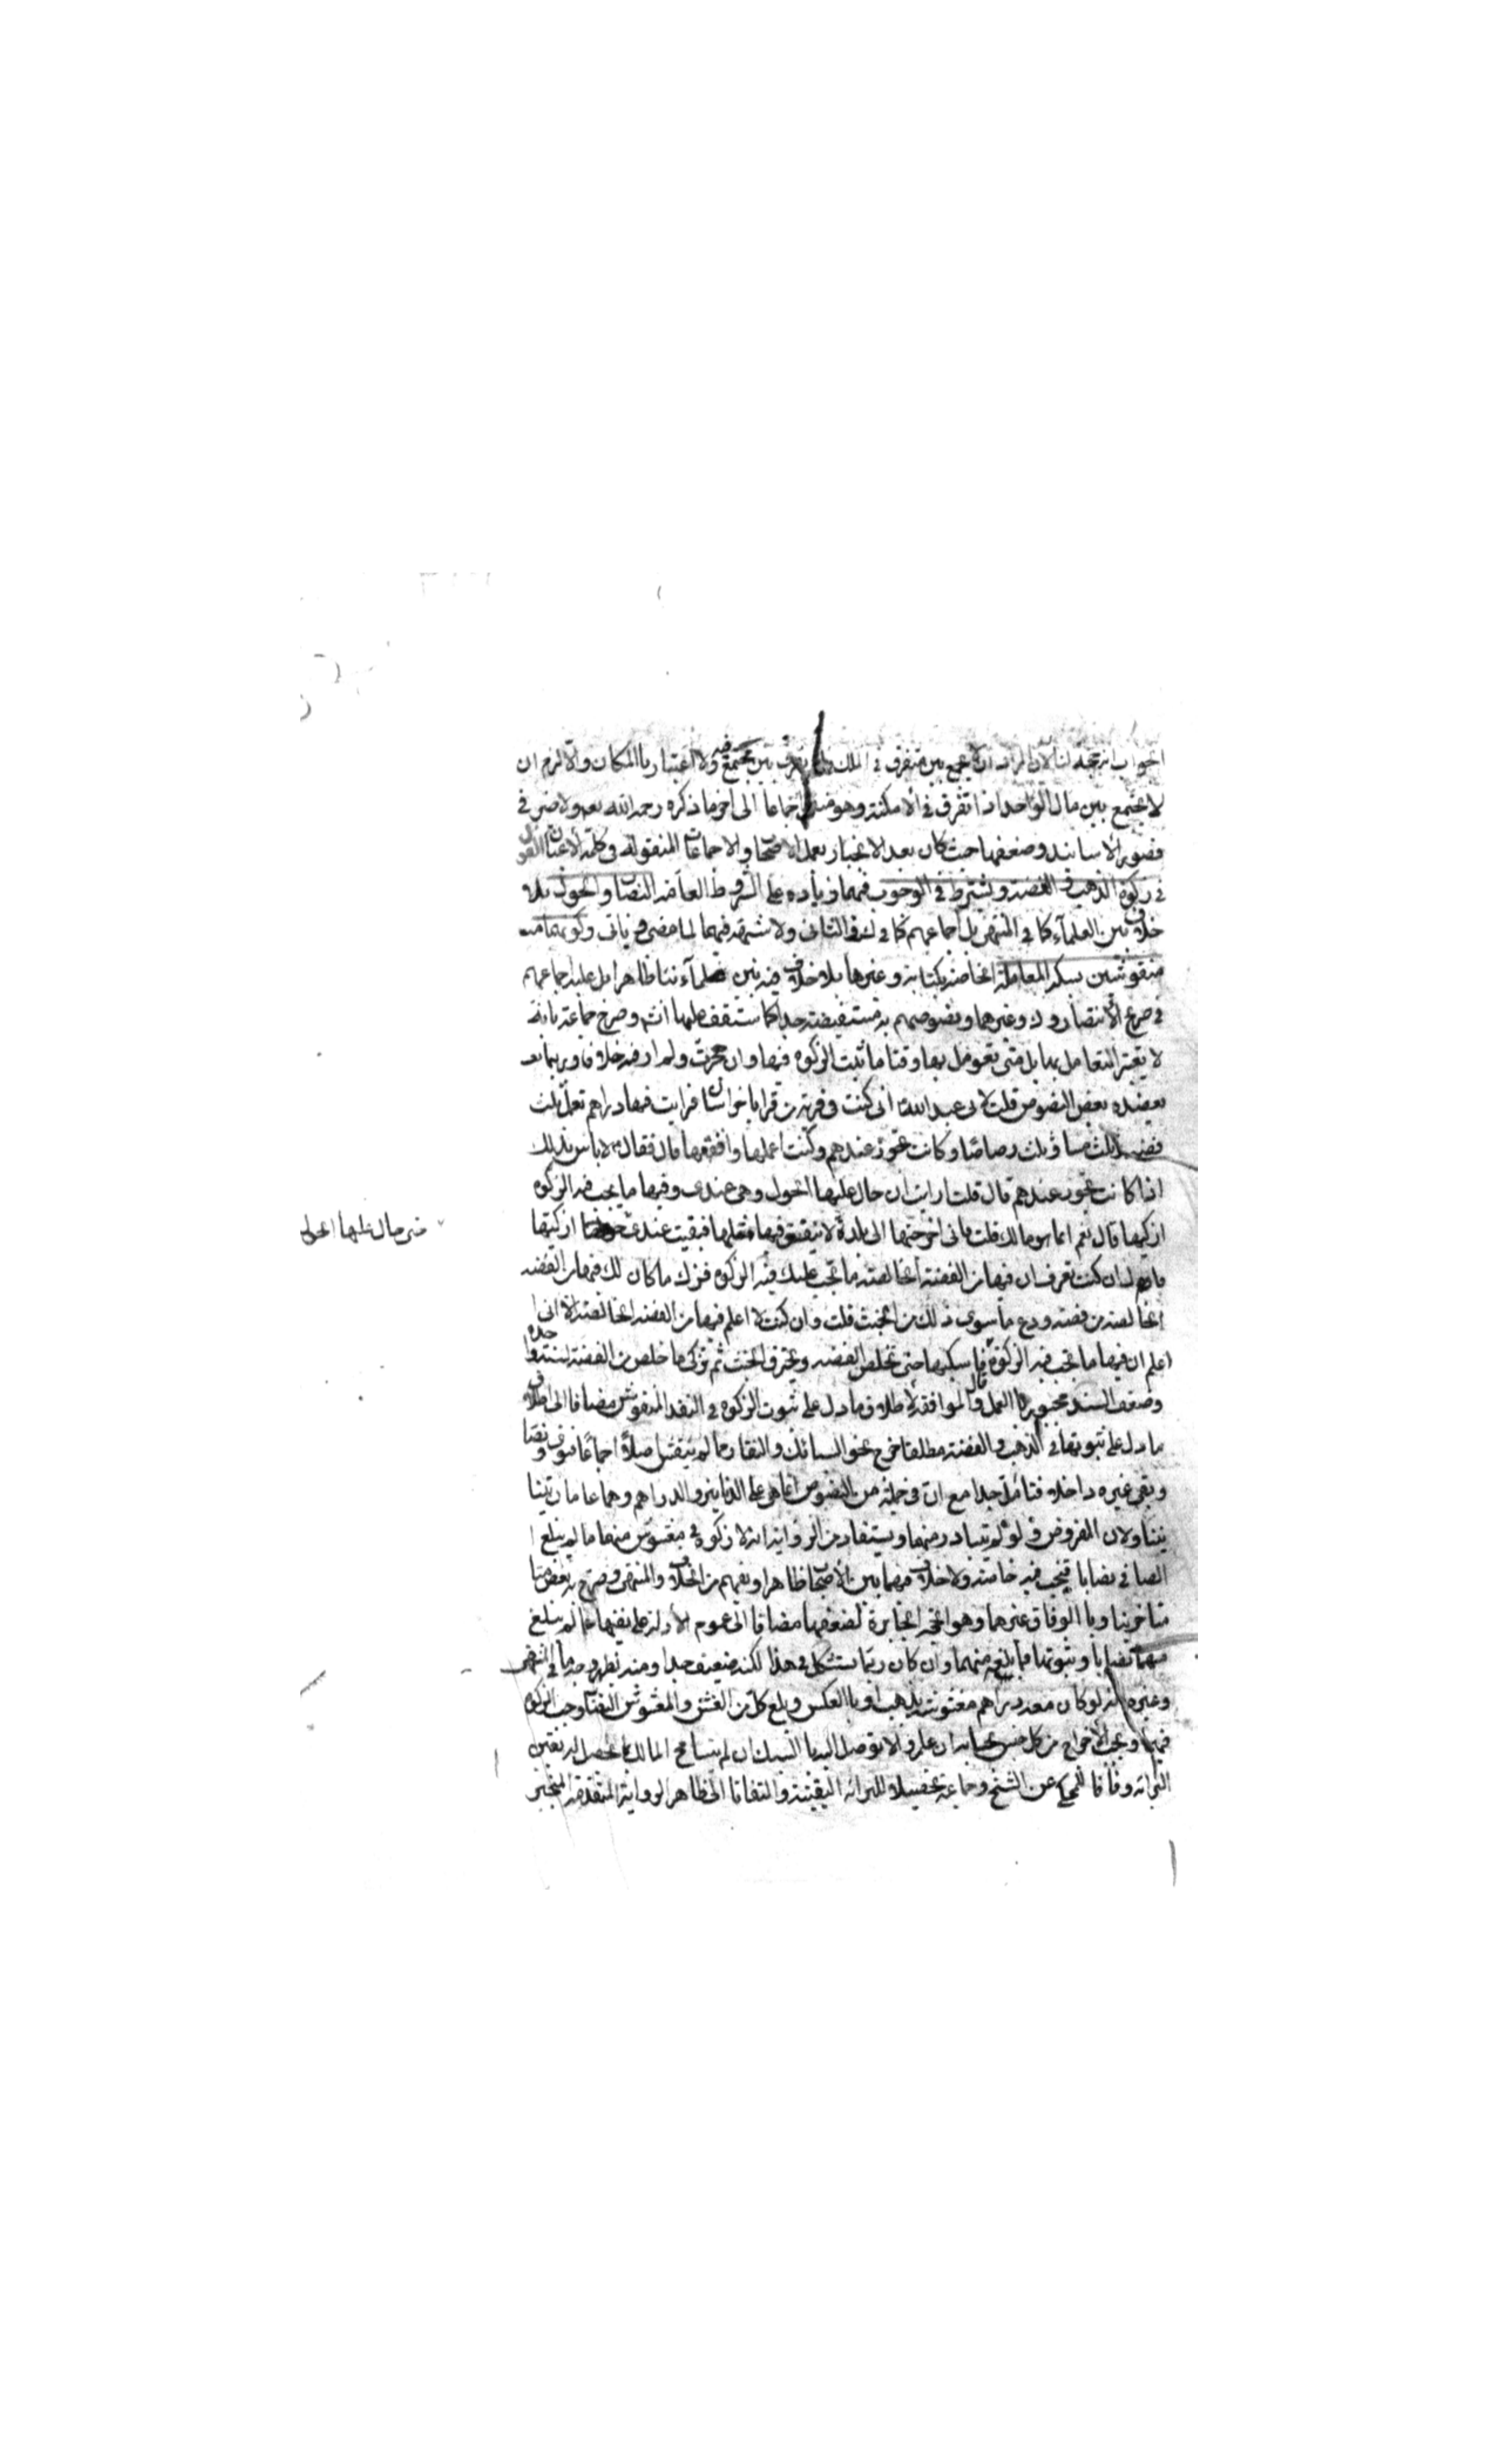 الجواب انه حجة لنا لان المراد ان لا يجمع بين متفرق في الملك ولا يفرق بين مجتمع فيه ولا اعتبار بالمكان والا لزم ان
لا يجتمع بين مال الواحد اذا تفرق في الامكنة وهو اجماعا الى اخر ما ذكره رحمه الله نعم ولا ضير في
قصور الاسانيد وضعفها حيث كان بعد الانجبار بعمل الاصحاب والاجماعات المنقولة في كلمة الاعيان القول
في زكوة الذهب والفضة ويشترط في الوجوب فيهما زيادة على الشروط العامة النصاب والحول بلا
خلاف بين العلماء كما في المنتهى بل اجماعهم كما في الثاني ولا شبهة فيهما لما مضى وياتى وكونهما
منقوشين بسكة المعاملة الخاصة بكتابة وغيرها بلا خلاف فيه بين علماءنا ظاهرا بل عليه اجماعهم
في صريح الانتصار و وغيرهما ونصوصهم به مستفيضة جدا كما ستقف عليها انش وصرح جماعة بانه
لا يعتبر التعامل بها بل متى تعومل بها وقتا ما ثبتت الزكوة فيها وان هجرت ولم ار فيه خلافا وربما
يعضده بعض النصوص قلت لابى عبد الله انى كنت في قرية من قرايا خراسان فرايت فيها دراهم تعمل ثلث
فضة وثلث مسا وثلث رصاصا وكانت تجوز عندهم وكنت اعملها وانفقها قال فقال لا باس بذلك
اذا كانت تجوز عندهم قال قلت ارايت ان حال عليها الحول وهى عندى وفيها ما يجب فيه الزكوة
ازكيها قال نعم انما هو مالك قلت فانى اخرجتها الى بلدة لا ينفق فيها مثلها فبقيت عندى ازكيها
حتى حال عليها الحول
قال ان كنت تعرف ان فيها من الفضة الخالصة ما تجب عليك فيه الزكوة فزك ما كان لك فيها من الفضة
الخالصة من فضة ودع ما سوى ذلك من الخبث قلت وان كنت لا اعلم فيها من الفضة الخالصة الا انى
اعلم ان فيها ما تجب فيه الزكوة قال فاسبكها حتى تخلص الفضة ويحترق الخبث ثم تزكى ما خلص من الفضة لسنة واحدة
وضعف السند مجبور بالعمل والموافقة لاطلاق ما دل على ثبوت الزكوة في النقد المنقوش مضافا الى اطلاق
ما دل على ثبوتها في الذهب والفضة مطلقا خرج نحو السبائك والنقار مما لم ينقش اصلا اجماعا فتوى ونصا
وبقى غيره داخلا فتامل جدا مع ان في جملة من النصوص انما هى على الدنانير والدراهم وهما عاما
يتناولان المفروض ولو لم يتبادر منهما ويستفاد من الرواية انه لا زكوة في مغشوش منهما ما لم يبلغ
الصافى نصابا فيجب فيه خاصة ولا خلاف فيهما بين الاصحاب ظاهرا ويفهم من الخلاف والمنتهى وصرح به بعض
متاخرينا وبالوفاق غيرهما وهو الحجة الجابرة لضعفها مضافا الى عموم الادلة على نفيها عما لم يبلغ
منهما نصابا وثبوتها فيما بلغه منهما وان كان ربما يستشكل في هذا لكنه ضعيف جدا ومنه يظهر وجه ما في المنتهى
وغيره انه لو كان معه دراهم مغشوشة بذهب او بالعكس وبلغ كل من الغش والمغشوش النصاب وجب الزكوة
فيهما ويجب الاخراج من كل جنس بحسابه ان علم والا توصل اليه بالسبك ان لم يسامح المالك بما يحصل له يقين
البرائة وفاقا للمحكى عن الشيخ وجماعة تحصيلا للبرائة اليقينية والتفاتا الى ظاهر الرواية المتقدمة المنجبر